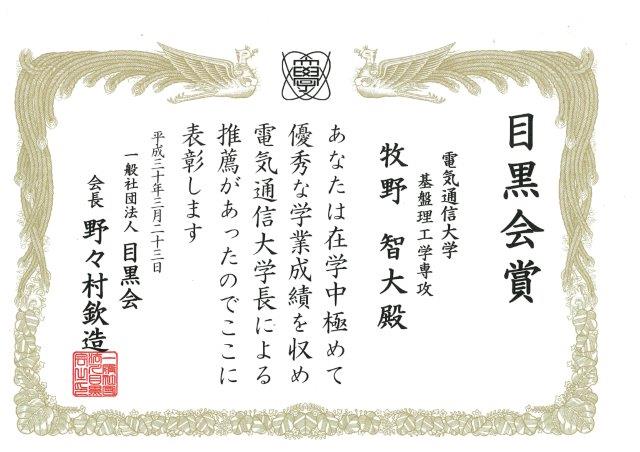 目黒会賞
電気通信大学
基盤理工学専攻
牧野 智大殿
あなたは在学中極めて
優秀な学業成績を収め
電気通信大学長による
推薦があったのでここに
表彰します
平成三十年三月二十三日
一般社団法人 目黒会
会長 野々村欽造